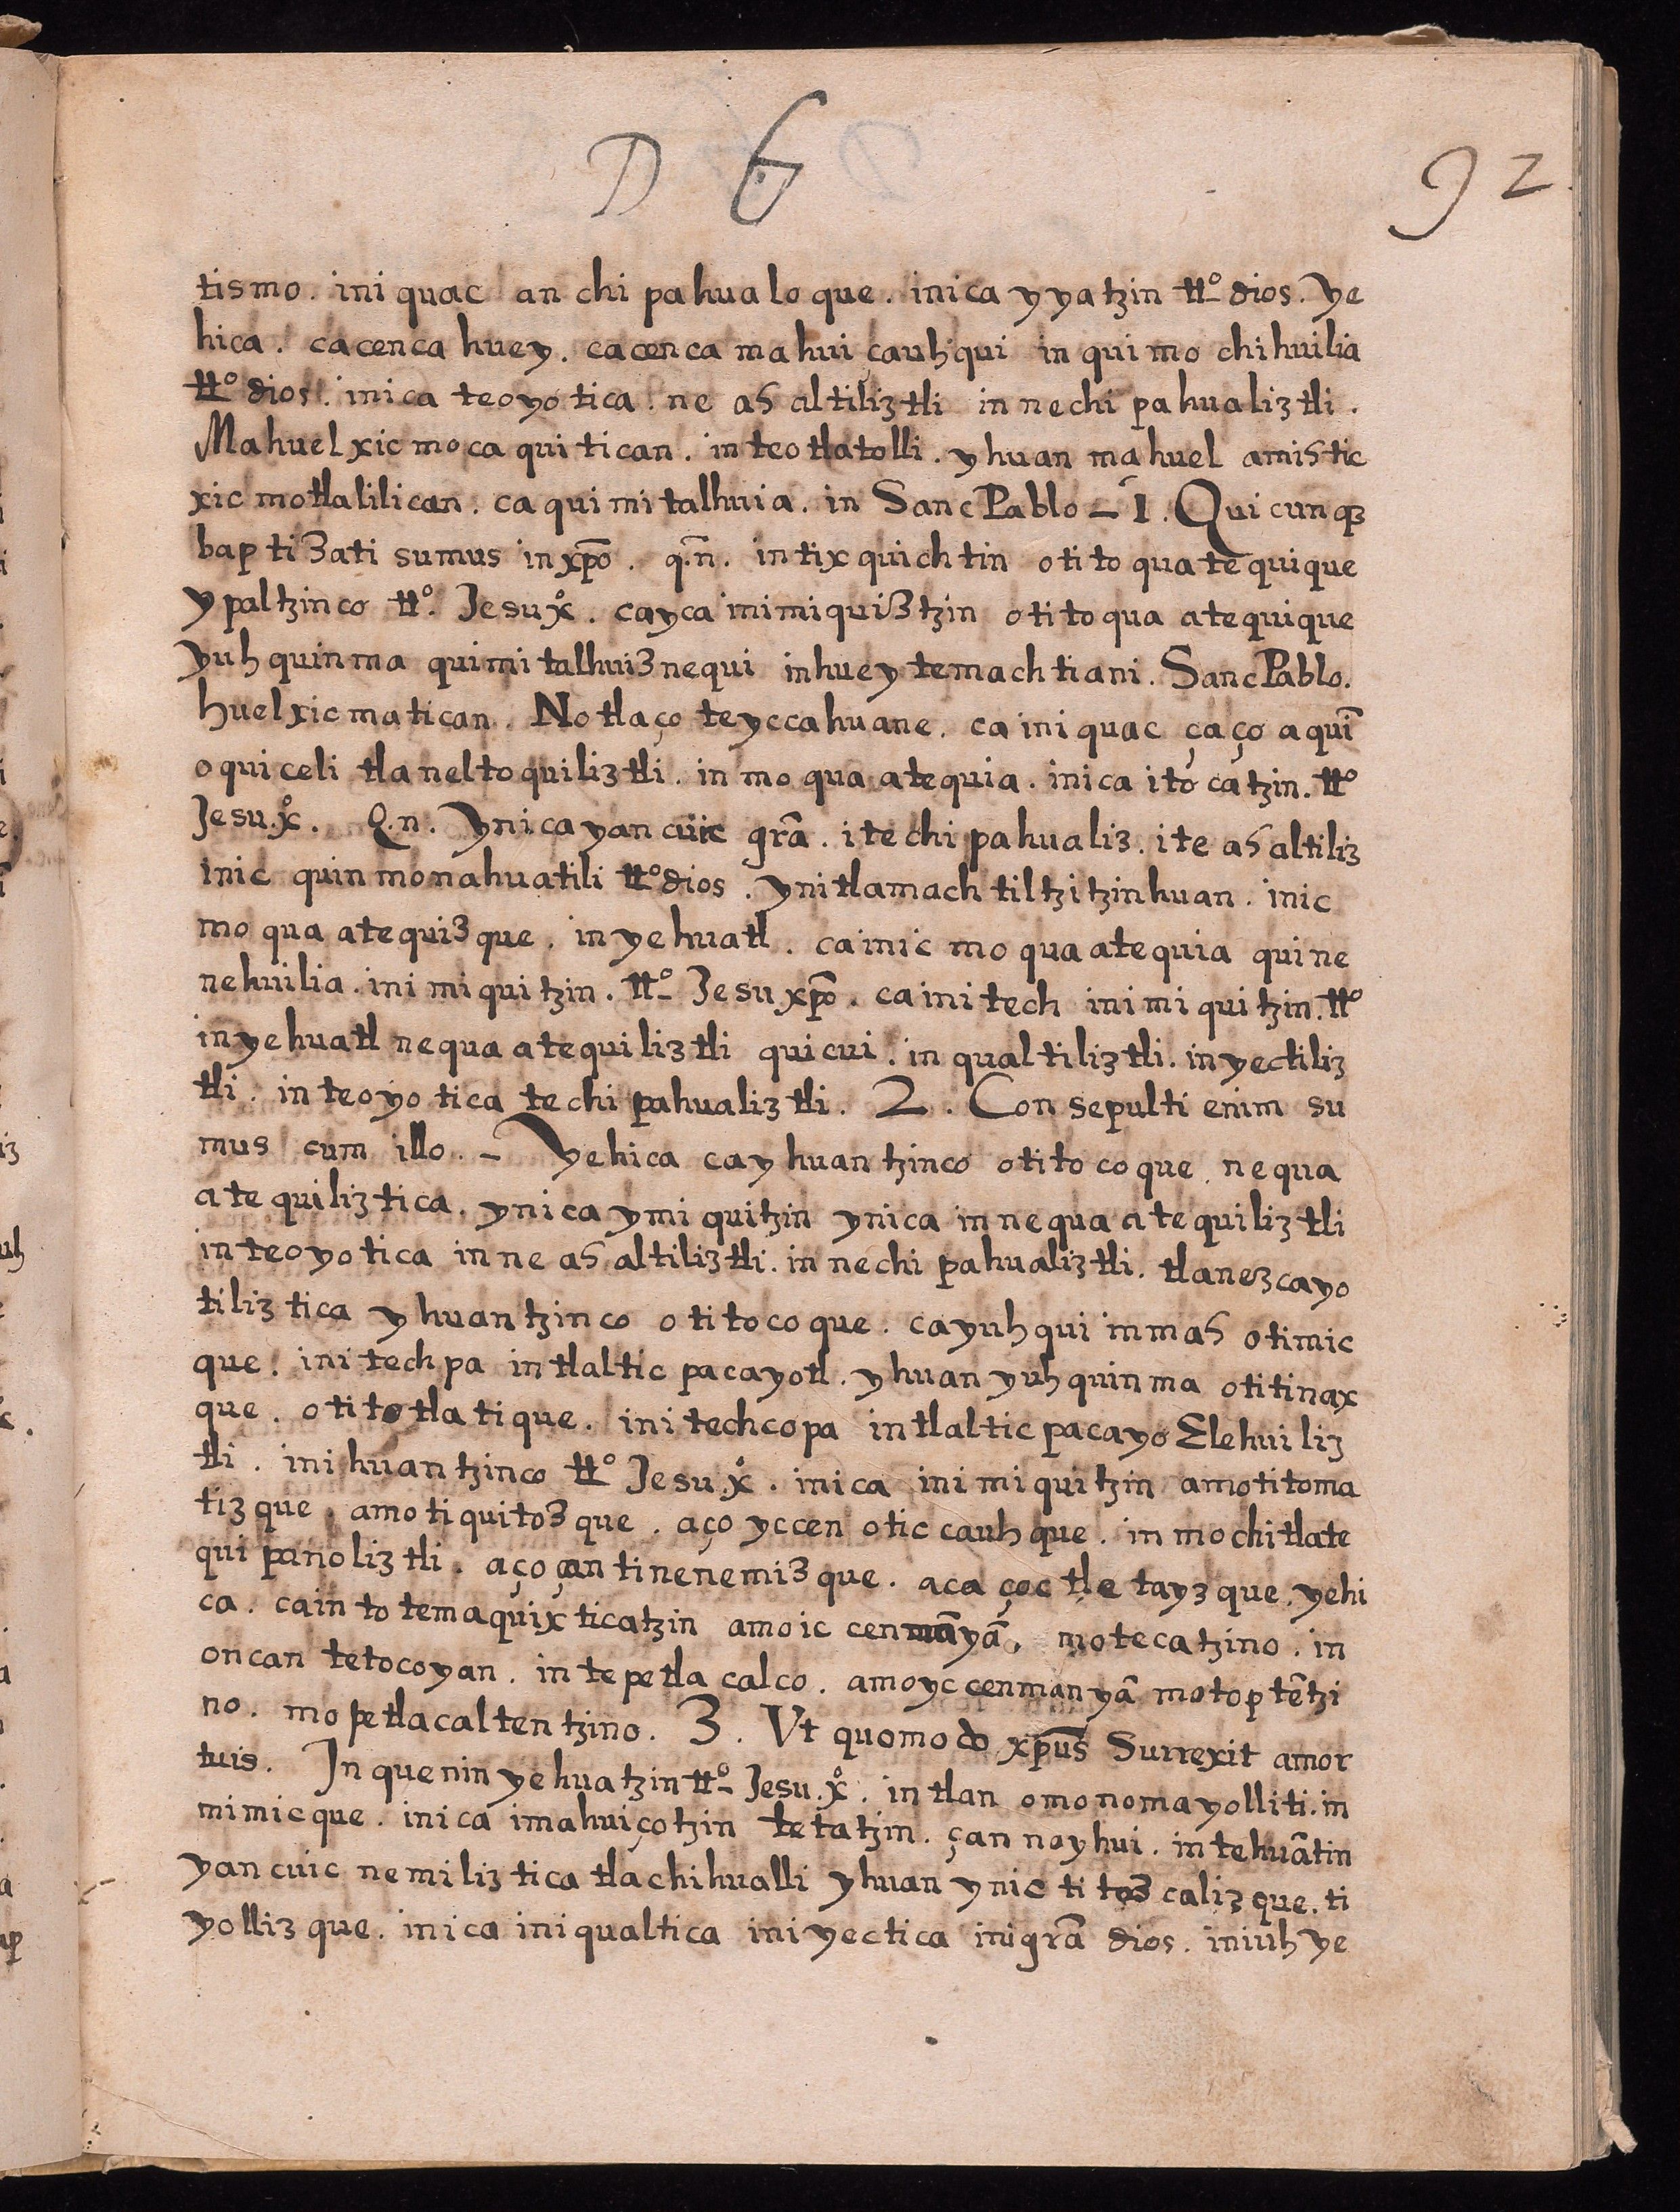 D 6 92
tismo. ini quac an chi pahualo que. inica y yatzin tt.º dios. ye
hica. cacenca huey. cacenca mahui çauhqui in quimo chihuilia
tt.º dios. inica teoyotica. ne as altiliztli in nechi pahualiztli.
Mahuel xic mo ca qui tican. in teotlatolli. yhuan mahuel amistic
xic motlalilican. ca qui mi talhuia. in Sanc Pablo – 1. Qui cunqꝫ
bap tizati sumus in xp̄o. q.n̄. in tix quich tin otito qua te quique
ypaltzinco tt.º Jesu xº. cayca imimiquiztzin otitoqua atequique
yuh quin ma quimi talhuiznequi in huey temach tiani. Sanc Pablo.
huel xic matican. No tlaço teyccahuane. ca ini quac çaço a quī
o qui celi tla nelto quiliztli. in mo qua atequia. inica itocatzin. tt.º
Jesu. xº. Q.n. ynica yan cuic gr̄a. ite chi pahualiz. ite as altiliz
inic quin monahuatili tt.º dios. yni tlamach til tzitzin huan. inic
mo qua atequiz que. in ye huatl. ca inic mo qua atequia qui ne
nehuilia. ini mi quitzin. tt.º Jesu xp̄o. ca ini tech ini mi quitzin. tt.º
in yehuatl nequa atequi liztli qui cui. in qualtiliztli. in yectiliz
tli. in teoyo tica te chi pahualiztli. 2. Con sepulti enim su
mus cum illo. – Yehica cay huan tzinco otito co que. nequa
ate quiliztica. ynica ymi quitzin ynica in nequa ate quiliztli
in teoyotica in ne as altiliztli. in nechi pahualiztli. tlanezcayo
tiliz tica yhuan tzinco otitoco que. cayuhqui inmas otimic
que. ini tech pa in tlaltic pacayotl. yhuan yuh quin ma otitinax
que. otitotla tique. ini techcopa in tlaltic pacayo Elehuiliz
tli. ini huan tzinco tt.º Jesu. xº. inica ini mi quitzin amotitoma
tiz que. amo tiquitoz que. aço yccen otic cauh que. in mochi tlate
qui panoliztli. aço çan tinenemiz que. aca çoc tle tayz que. yehi
ca. cain to temaquix ticatzin amoic cenmāyā. motecatzino. in
oncan tetocoyan. in tepetla calco. amoyc cenmanyā motoptētzi
no. mopetlacaltentzino. 3. Vt quomodo xp̄us Surrexit amor
tuis. In quenin ye huatzin tt.º Jesu. xº. in tlan omonomayolliti. in
mimicque. inica imahuiçotzin tetatzin. çan noyhui. in tehuātin
yan cuic nemiliz tica tlachihualli yhuan ynic ti toz caliz que. ti
yolliz que. inica iniqualtica iniyectica inigrā dios. iniuh ye